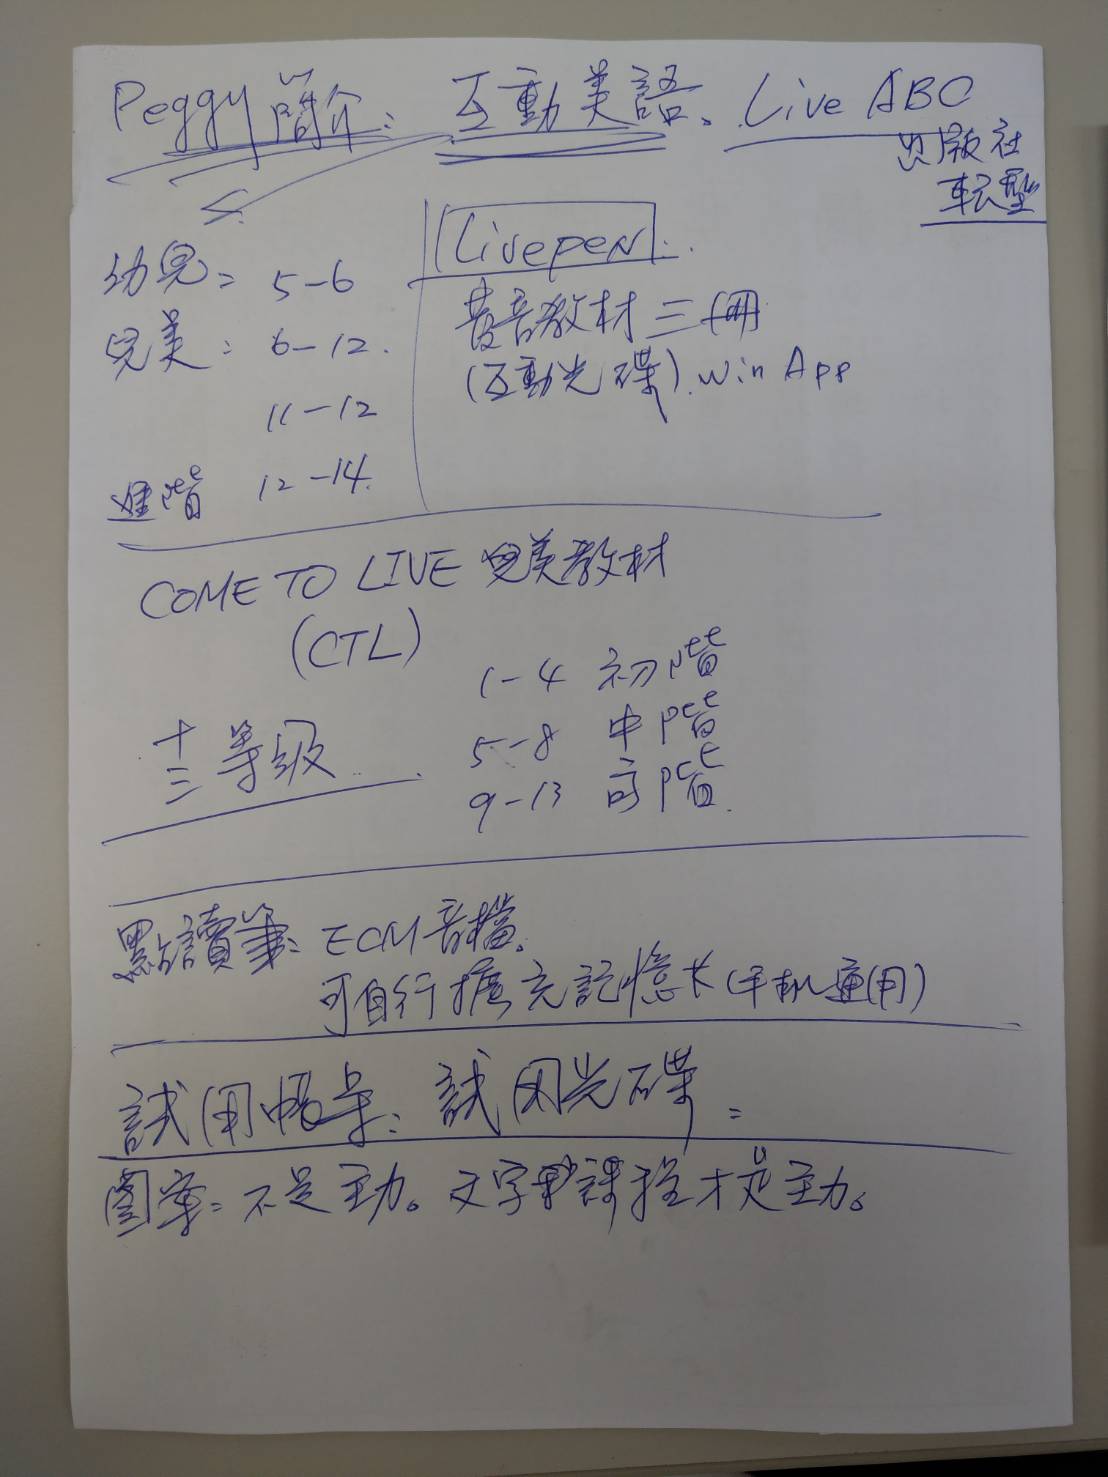 Peggy 簡介: 互動美語、Live ABC
出版社
転型
幼兒: 5-6
兒美: 6-12.
11-12
進階 12-14.
Livepen:
發音教材三冊
(互動光碟). Win App
COME TO LIVE 兒美教材
(CTL)
十三等級
1-4 初階
5-8 中階
9-13 高階.
點讀筆: ECM音檔.
可自行擴充記憶卡(手机通用)
試用帳号: 試用光碟:
圖章: 不是主力。文字課程才是主力。